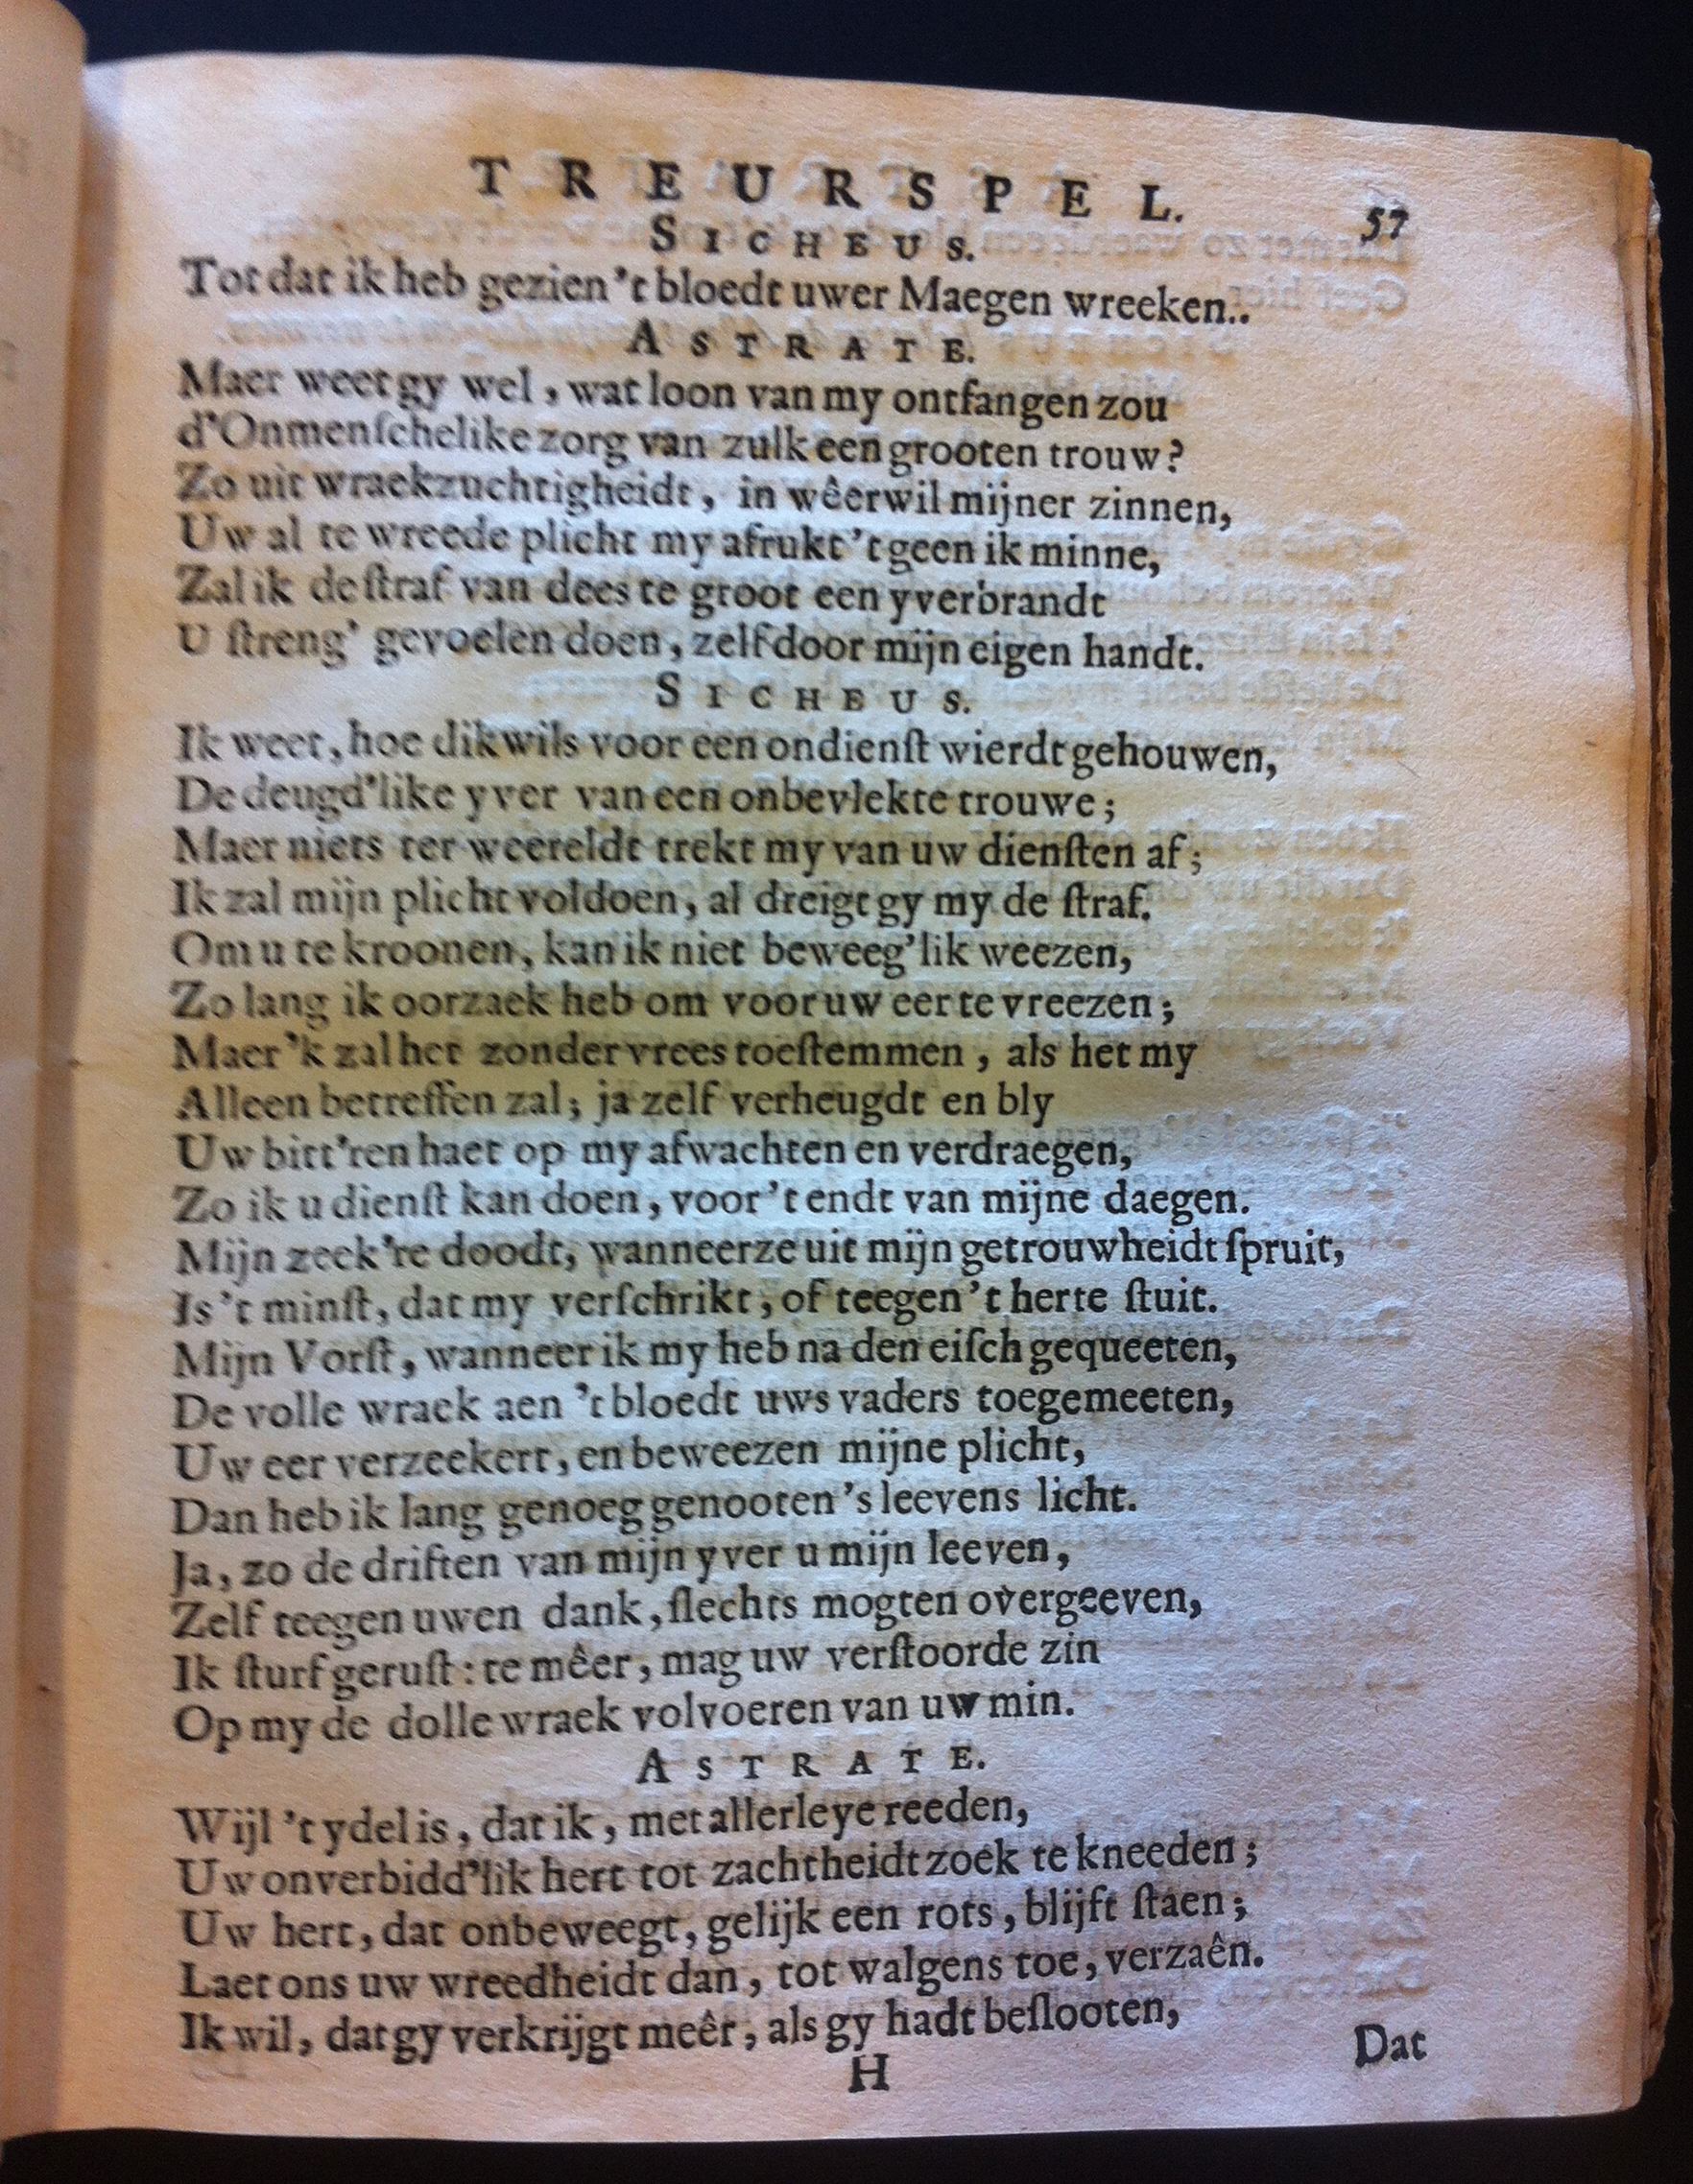 TREURSPEL. 57
SICHEUS.
Tot dat ik heb gezien 't bloedt uwer Maegen wreeken..
ASTRATE.
Maer weet gy wel, wat loon van my ontfangen zou
d'Onmenſchelike zorg van zulk een grooten trouw?
Zo uit wraekzuchtigheidt, in wêerwil mijner zinnen,
Uw al te wreede plicht my afrukt 't geen ik minne,
Zal ik de ſtraf van dees te groot een yverbrandt
U ſtreng' gevoelen doen, zelf door mijn eigen handt.
SICHEUS.
Ik weet, hoe dikwils voor een ondienſt wierdt gehouwen,
De deugd'like yver van een onbevlekte trouwe;
Maer niets ter weereldt trekt my van uw dienſten af;
Ik zal mijn plicht voldoen, al dreigt gy my de ſtraf.
Om u te kroonen, kan ik niet beweeg'lik weezen,
Zo lang ik oorzaek heb om voor uw eer te vreezen;
Maer 'k zal het zonder vrees toeſtemmen, als het my
Alleen betreffen zal; ja zelf verheugdt en bly
Uw bitt'ren haet op my afwachten en verdraegen,
Zo ik u dienſt kan doen, voor 't endt van mijne daegen.
Mijn zeek're doodt, wanneerze uit mijn getrouwheidt ſpruit,
Is 't minſt, dat my verſchrikt, of teegen 't herte ſtuit.
Mijn Vorſt, wanneer ik my heb na den eiſch gequeeten,
De volle wraek aen 't bloedt uws vaders toegemeeten,
Uw eer verzeekert, en beweezen mijne plicht,
Dan heb ik lang genoeg genooten 's leevens licht.
Ja, zo de driften van mijn yver u mijn leeven,
Zelf teegen uwen dank, ſlechts mogten overgeeven,
Ik ſturf geruſt: te mêer, mag uw verſtoorde zin
Op my de dolle wraek volvoeren van uw min.
ASTRATE.
Wijl 't ydel is, dat ik, met allerleye reeden,
Uw onverbidd'lik hert tot zachtheidt zoek te kneeden;
Uw hert, dat onbeweegt, gelijk een rots, blijft ſtaen;
Laet ons uw wreedheidt dan, tot walgens toe, verzaên.
Ik wil, dat gy verkrijgt meêr, als gy hadt beſlooten,
H Dat